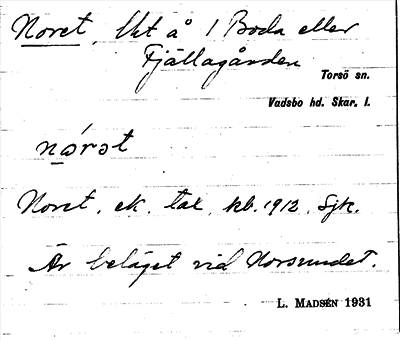 Noret, lht å 1 Boda eller
Fjällagården
Torsö sn.
Vadsbo hd. Skar. l.
nó̱rət
Noret, ek. tax, kb. 1912, Sjk.
Är beläget vid Norsundet.
L. MADSÉN 1931